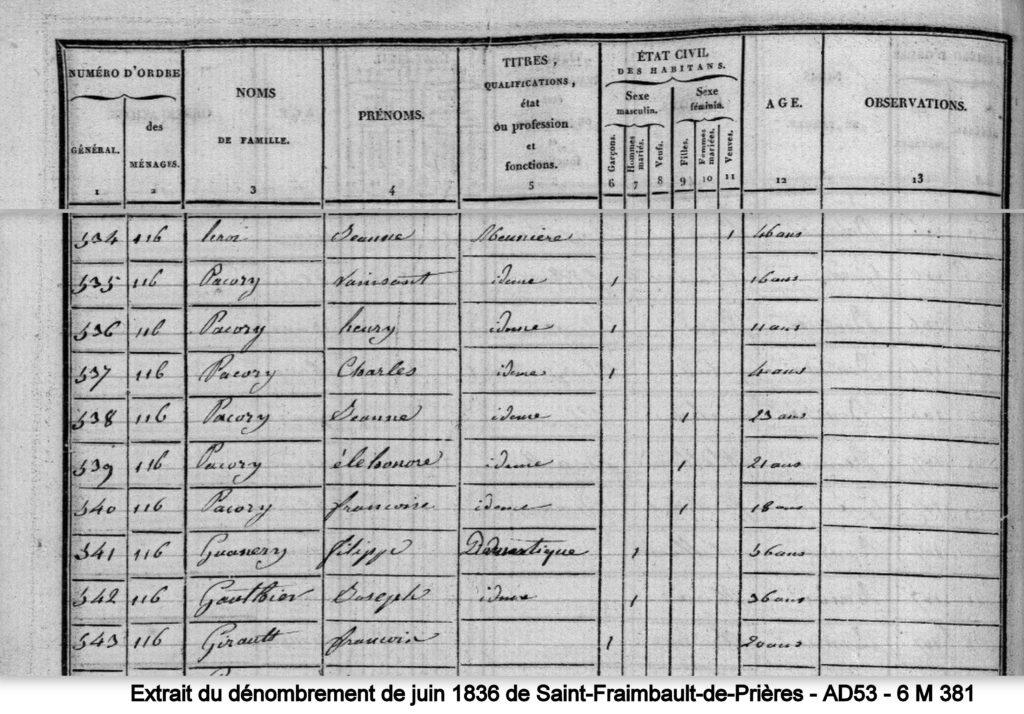 NUMÉRO D'ORDRE
GÉNÉRAL. 1
des MÉNAGES. 2
NOMS DE FAMILLE. 3
PRÉNOMS. 4
TITRES, QUALIFICATIONS, état ou profession et fonctions. 5
ÉTAT CIVIL DES HABITANS.
Sexe masculin.
Sexe féminin.
Garçons. 6
Hommes mariés. 7
Veufs. 8
Filles. 9
Femmes mariées. 10
Veuves. 11
AGE. 12
OBSERVATIONS. 13
534 116 leroi Jeanne Meuniere 1 46 ans
535 116 Pacory Vainsant ideme 1 16 ans
536 116 Pacory henry ideme 1 11 ans
537 116 Pacory Charles ideme 1 4 ans
538 116 Pacory Jeanne ideme 1 23 ans
539 116 Pacory éléhonore ideme 1 21 ans
540 116 Pacory francoise ideme 1 18 ans
541 116 filippe Domestique 1 56 ans
542 116 Gaulthier Joseph ideme 1 36 ans
543 116 Girault francois 1 20 ans
Extrait du dénombrement de juin 1836 de Saint-Fraimbault-de-Prières - AD53 - 6 M 381